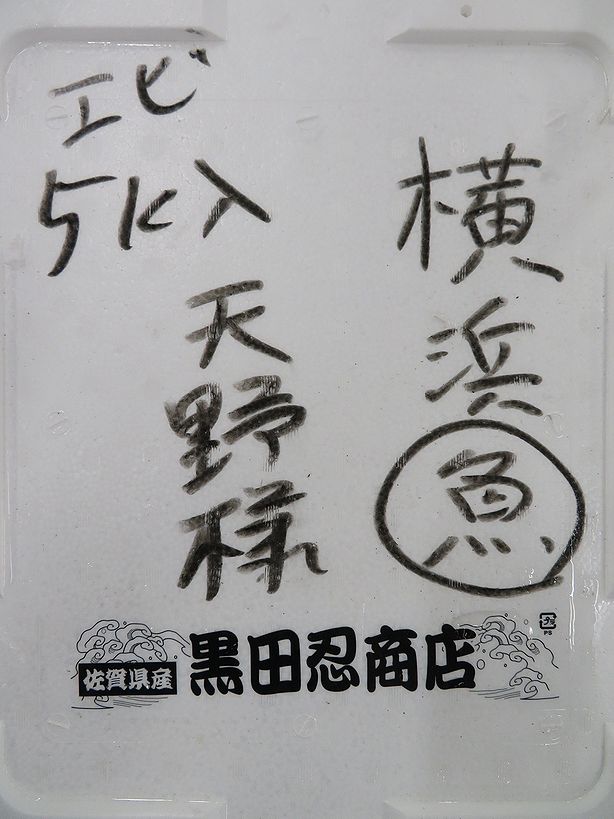 横浜魚
エビ
5K入
天野様
佐賀県産 黒田忍商店
プラ
PS